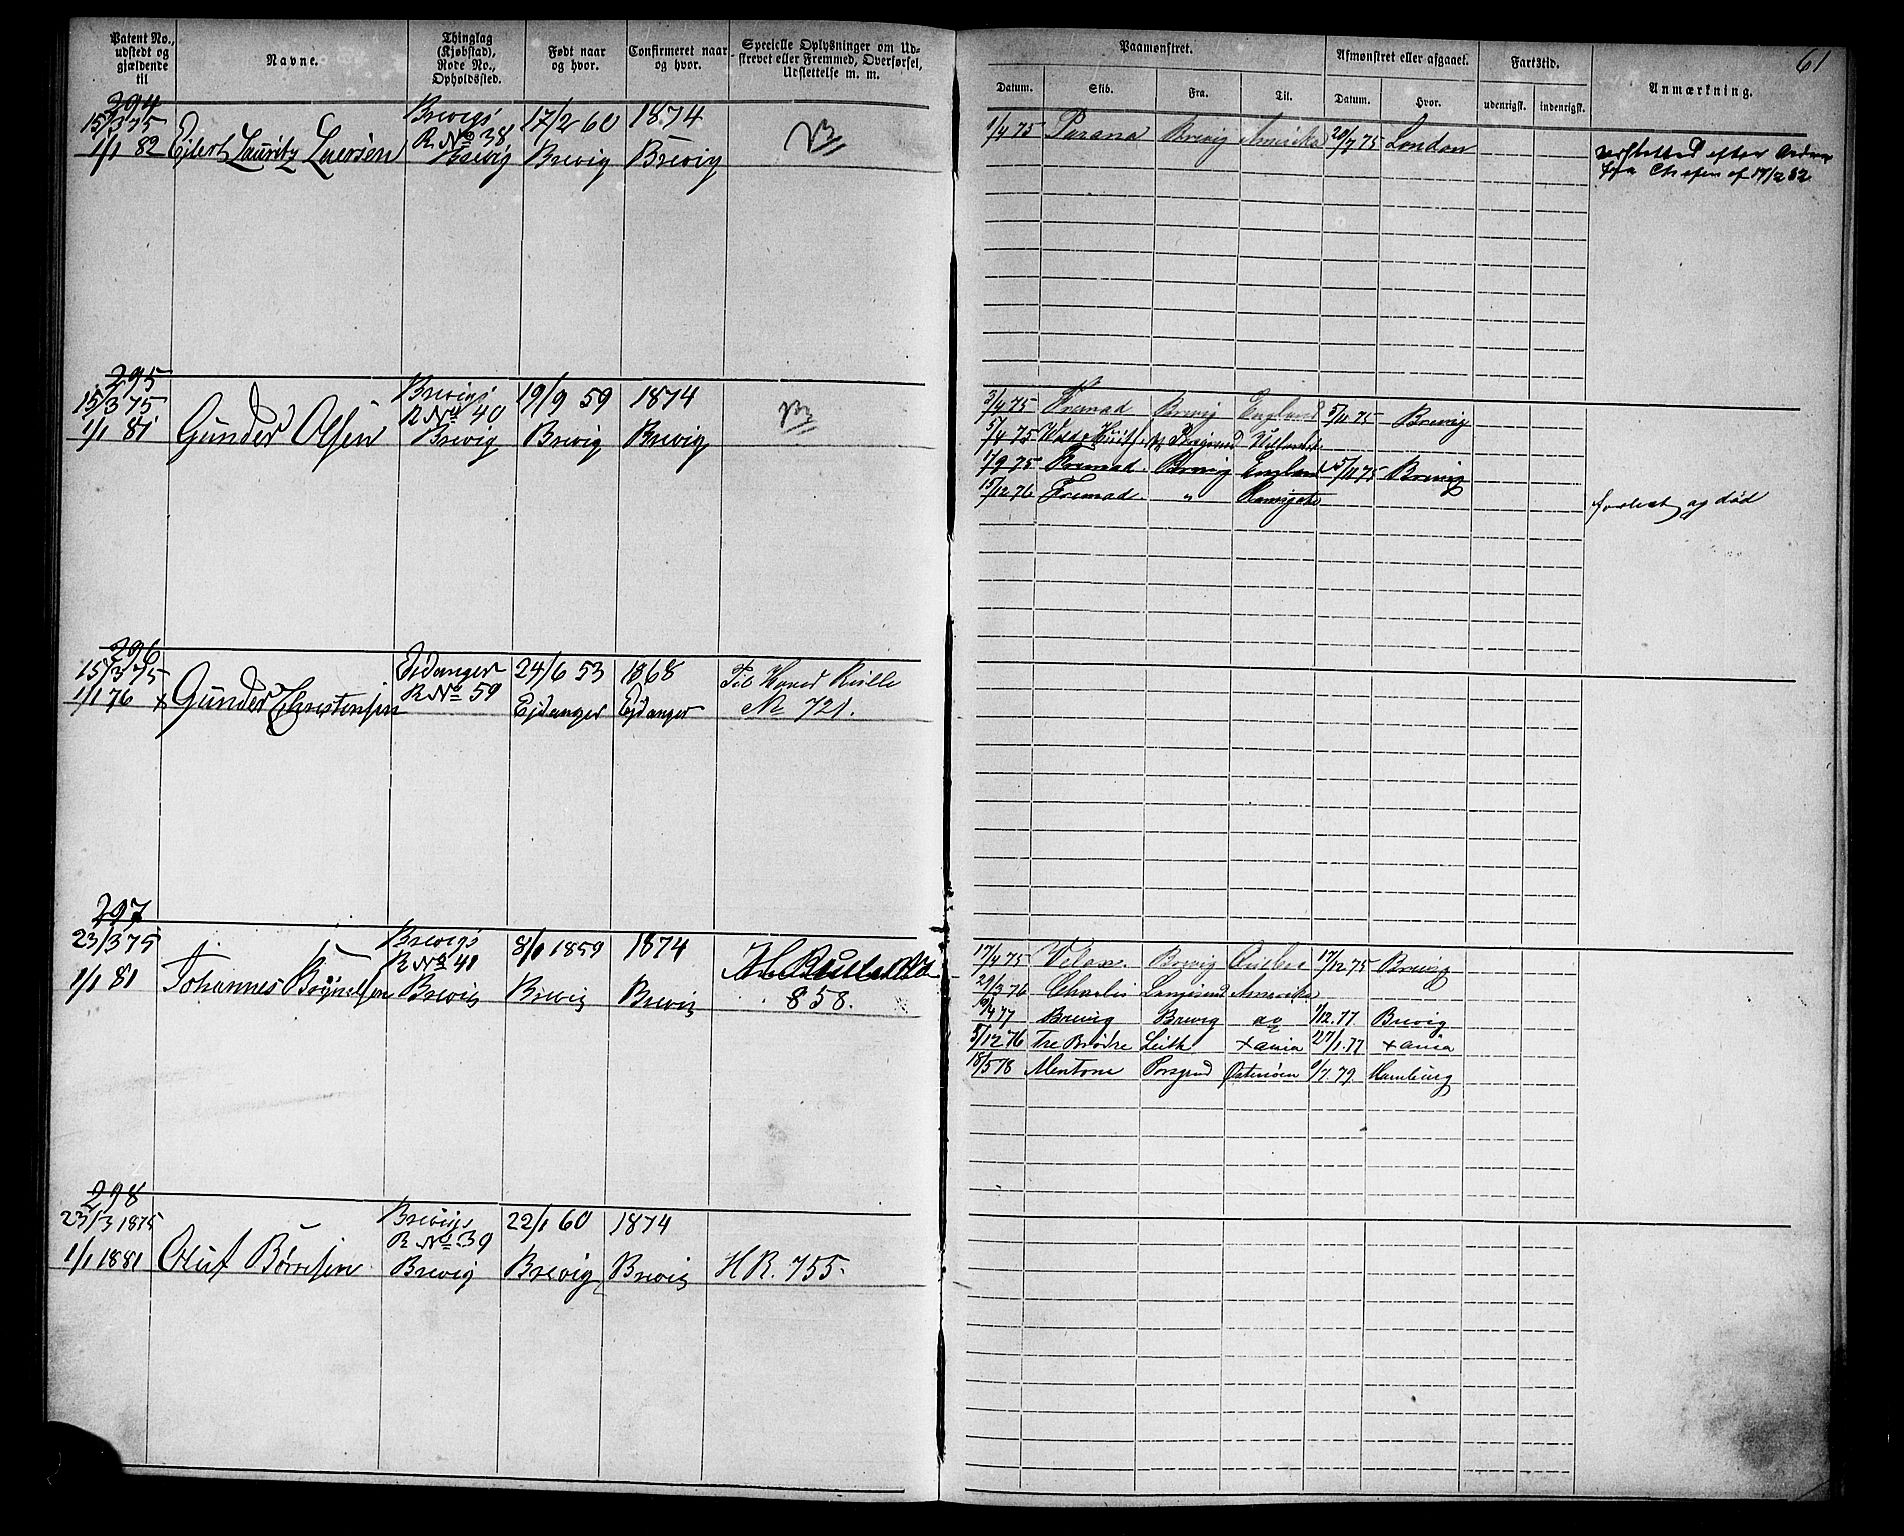 61
Patent No., udstedt og gjældende til
Navne.
Thinglag (Kjøbstad), Rode No., Opholdssted.
Født naar og hvor.
Confirmeret naar og hvor.
Specielle Oplysninger om Udskrevet eller Fremmed, Overførsel, Udslettelse m. m.
Paamønstret.
Afmønstret eller afgaaet.
Fartstid.
Anmærkning.
Datum. Skib. Fra. Til. Datum. Hvor. udenrigsk. indenrigsk.
294
15/3 75 Brevigs 17/2 60 1874
1/1 82 Ejlert Lauritz Larsen R No 38 Brevig Brevig Brevig
1/4 75 Parana Brevig Amerika 20/7 75 London
udsletted efter Ordre
fra Chefen af 17/2 82
295
15/3 75 Brevigs 19/9 59 1874
1/1 81 Gunder Olsen R No 40 Brevig Brevig Brevig
3/4 75 Fremad Brevig England 5/11 75 Brevig
5/4 75
1/9 75 Fremad Brevig England 5/11 75 Brevig
15/12 76 Fremad " Ramsgate
forlist og død
296
15/3 75 Eidanger 24/6 53 1868 Til Hoved Rulle
1/1 76 x Gunder Christensen R No 59 Ejdanger Ejdanger No 721.
297
23/3 75 Brevigs 8/1 1859 1874
R No 41
1/1 81 Johannes Brynelsen Brevig Brevig Brevig 858.
17/4 75 Brevig 17/12 75 Brevig
29/3 76 Charlis Langesund Amerika
4 77 Brevig Brevig 1/12. 77 Brevig
5/12 76 Tre Brødre Leith Xania 27/1. 77 Xania
18/5 78 Mentone Porsgrund Østersøen 1/7. 79 Hamburg
298
23/3 1875 Brevigs 22/1 60 1874
R No 39
1/1 1881 Oluf Børresen Brevig Brevig Brevig H R. 755.